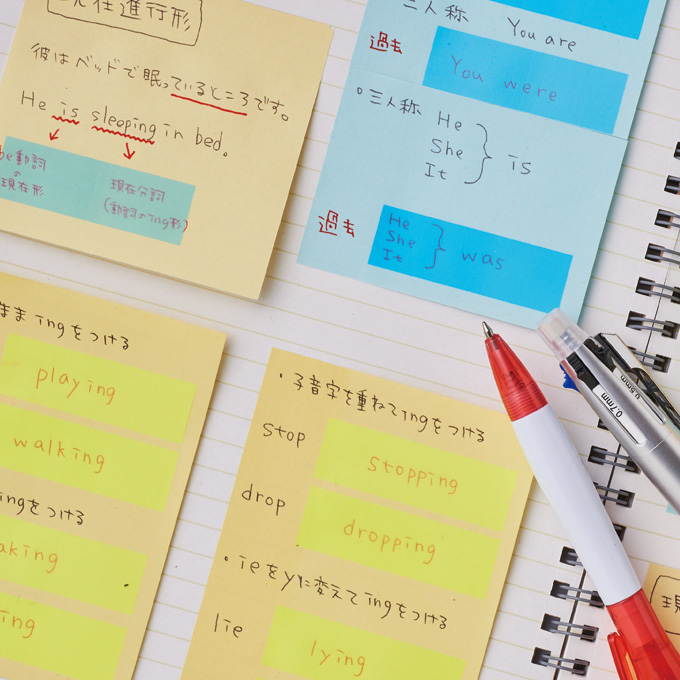 現在進行形
彼はベッドで眠っているところです。
He is sleeping in bed.
be動詞
の
現在形
現在分詞
(動詞のing形)
二人称 You are
過去 You were
○三人称 He
She
It
is
過去
He
She
It
was
ingをつける
playing
walking
ingをつける
aking
ing
・子音字を重ねてingをつける
stop stopping
drop dropping
・ieをyに変えてingをつける
lie lying
0.5mm
0.7mm
現